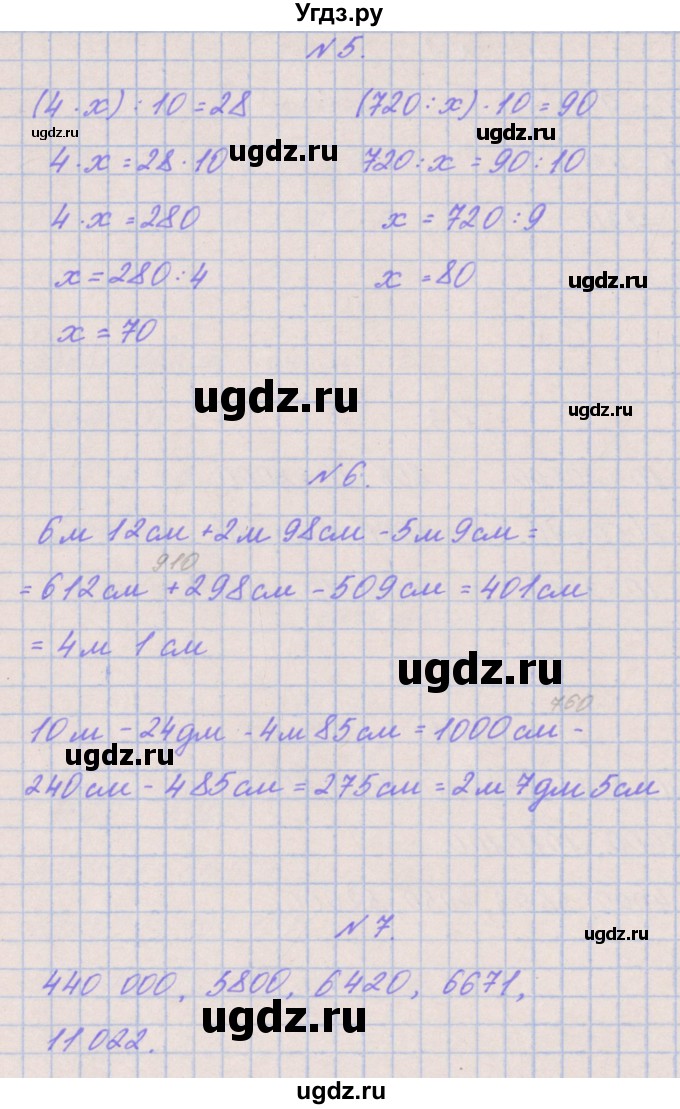 Угдз.ру
N 5.
(4 · x) : 10 = 28 (720 : x) · 10 = 90
ugdz.ru ugdz.ru ugdz.ru
4 · x = 28 · 10 720 : x = 90 : 10
4 · x = 280 x = 720 : 9
x = 280 : 4 x = 80 ugdz.ru
x = 70
ugdz.ru ugdz.ru
N 6.
6м 12см + 2м 98см - 5м 9см =
910
= 612см + 298см - 509см = 401см
= 4м 1см
ugdz.ru
760
10м - 24дм - 4м 85см = 1000см -
ugdz.ru
240см - 485см = 275см = 2м 7дм 5см
N 7.
ugdz.ru
440 000, 5800, 6420, 6671,
ugdz.ru ugdz.ru
11 022.
ugdz.ru